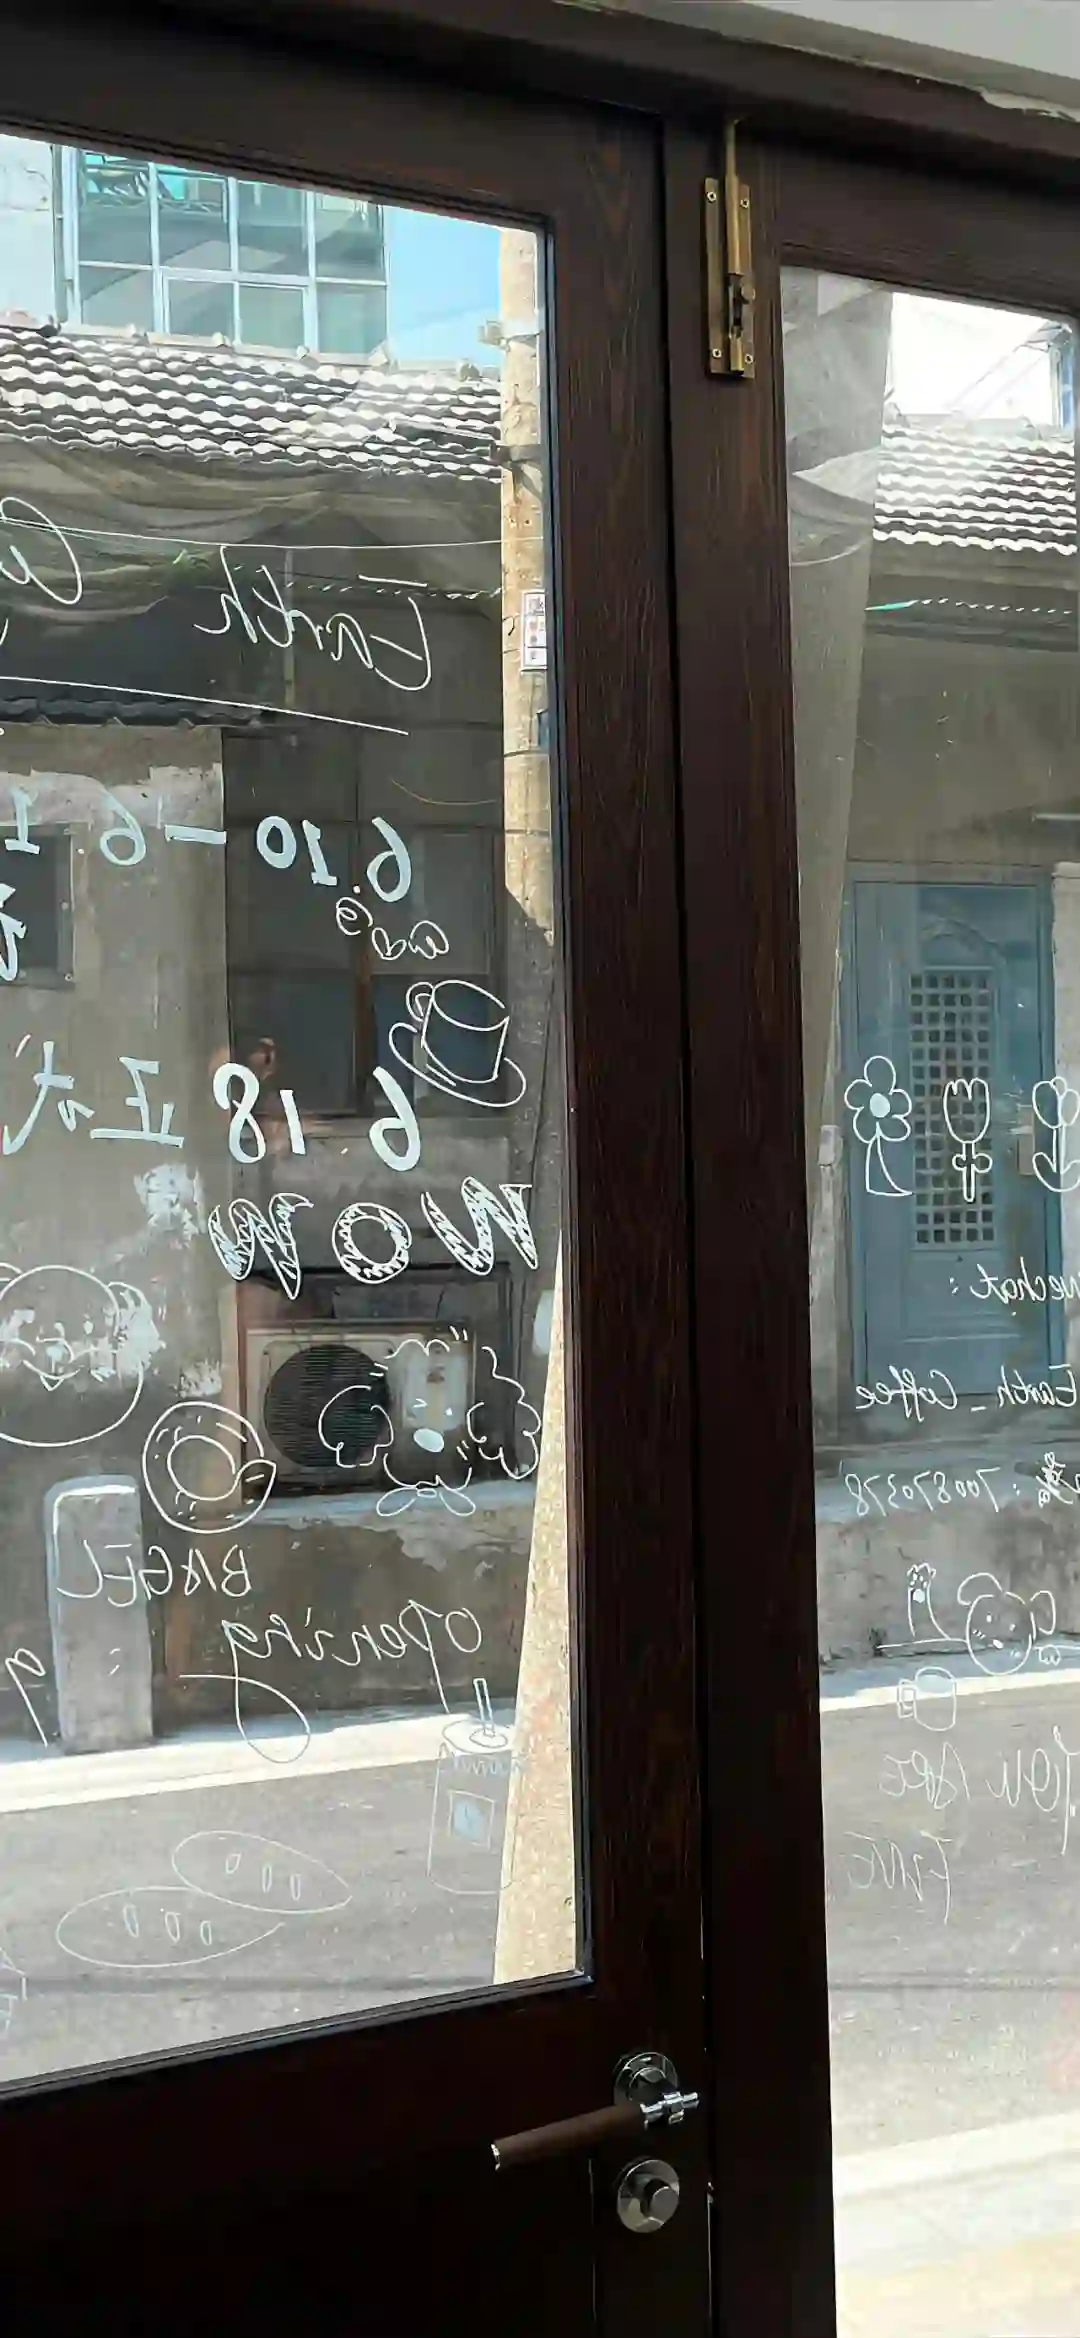 Earth
6.10-6.1
6.18 正式
NOW
BAGEL
opening :
wechat:
Earth_Coffee
: 700870378
YOU ARE
FINE